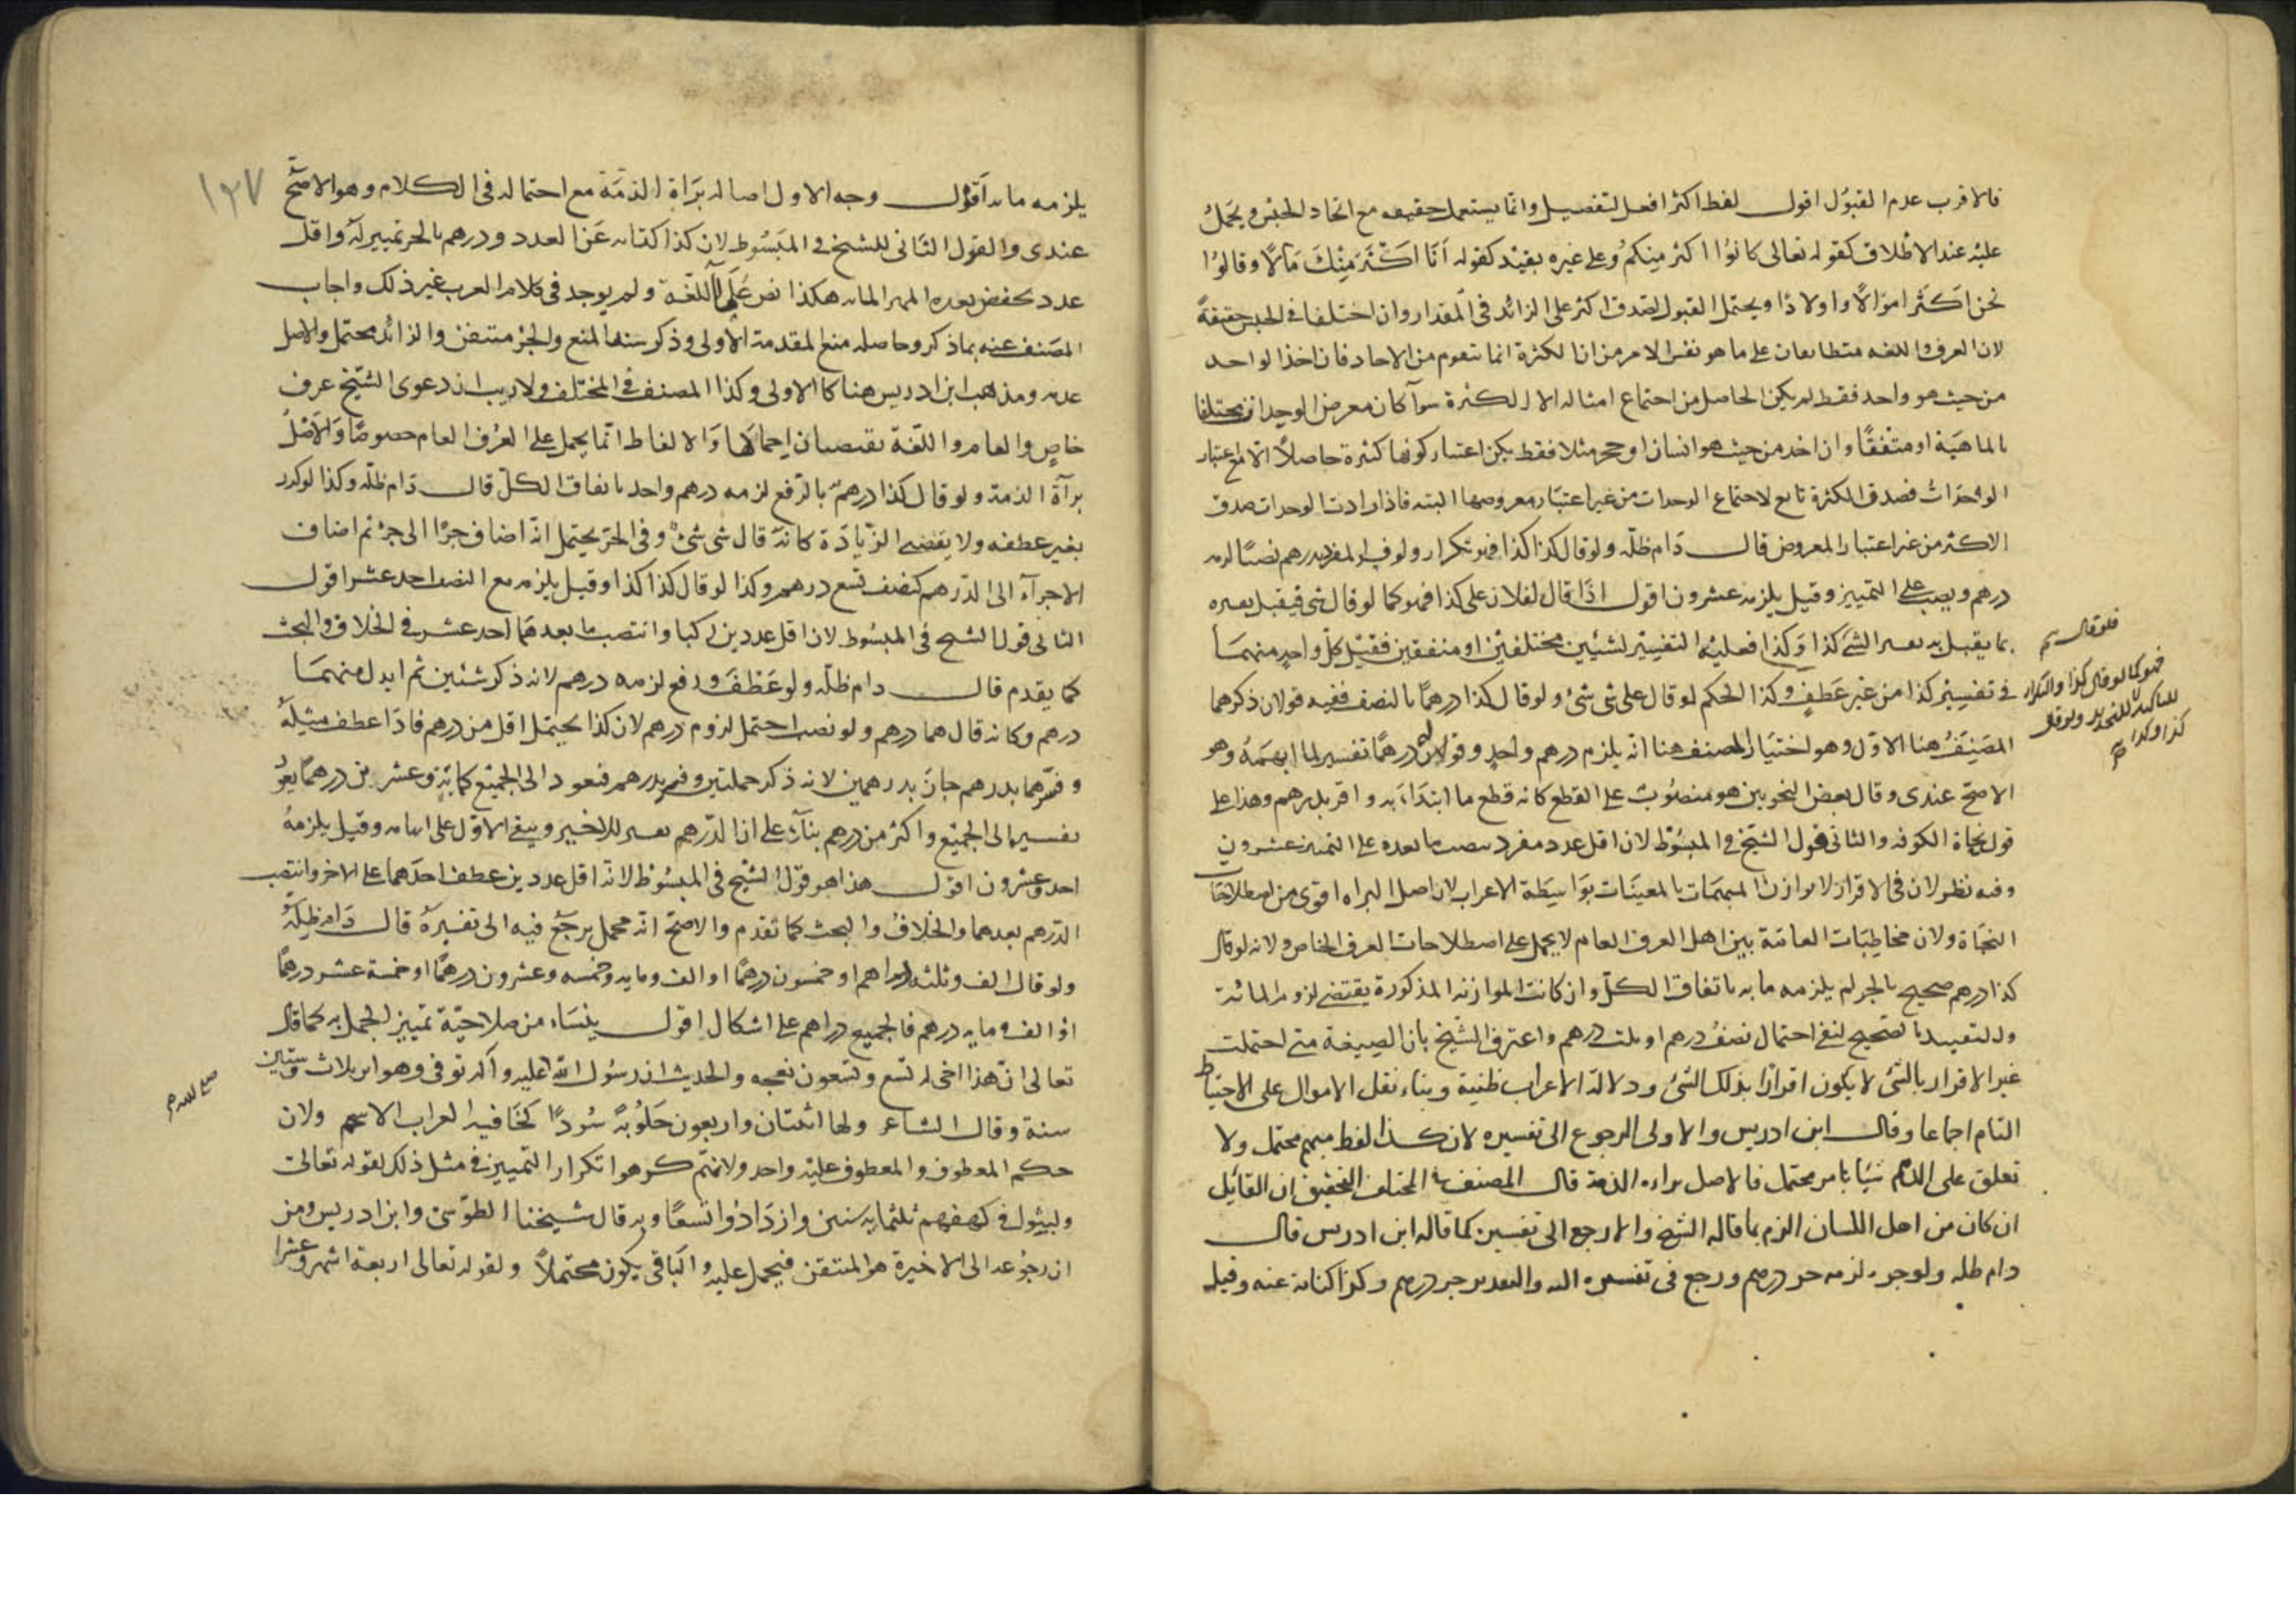 فالاقرب عدم القبول اقول لفظ اكثر افعل لتفضيل وانما يستعمل حقيقه مع اتحاد الجنس ويحمل
عليه عند الاطلاق كقوله تعالى كانوا اكثر منكم وعلى غيره بقيد كقوله انا اكثر منك مالا وقالوا
نحن اكثر اموالا واولادا ويحتمل القبول لصدق اكثر على الزائد فى المقدار وان اختلفا فى الجنس حقيقة
لان العرف واللغه متطابقان على ما هو نفس الامر من ان الكثرة انما تتقوم من الاحاد فان اخذ الواحد
من حيث هو واحد فقط لم يكن الحاصل من اجتماع امثاله الا الكثرة سوآ كان معروض الوحدات مختلفا
بالماهية او متفقا وان اخذ من حيث هو انسان او حجر مثلا فقط لم يكن اعتبار كونها كثرة حاصلا الا مع اعتبار
الواحدات فصدق الكثرة تابع لاجتماع الوحدات من غير اعتبار معروضها البته فاذا زادت الوحدات صدق
الاكثر من غير اعتبار المعروض قال دام ظله ولو قال كذا كذا فهو تكرار ولو فسر المفرد بدرهم نصبا لزمه
درهم ونصب على التمييز وقيل يلزمه عشرون اقول اذا قال لفلان على كذا فهو كما لو قال شى فيقبل تفسيره
بما يقبل به تفسير الشئ كذا وكذا فعليه التفسير لشيئين مختلفين او متفقين فقيل كل واحد منهما
فى تفسير كذا من غير عطف وكذا الحكم لو قال على شى شئ ولو قال كذا درهما بالنصف ففيه قولان ذكرهما
المصنف هنا الاول وهو اختيار المصنف هنا انه يلزم درهم واحد وقوله درهما تفسير لما ابهمه وهو
الاصح عندى وقال بعض النحويين هو منصوب على القطع كانه قطع ما ابتداء به واقر بدرهم وهذا على
قول نحاة الكوفه والثانى قول الشيخ فى المبسوط لان اقل عدد مفرد ينصب ما بعده على التمييز عشرون
وفيه نظر لان فى الاقرار لا موازنة المبهمات بالمعينات بواسطة الاعراب لان اصل البراه اقوى من اصطلاحات
النحاة ولان مخاطبات العامة بين اهل العرف العام لا يحمل على اصطلاحات العرف الخاص ولانه لو قال
كذا درهم صحيح بالجر لم يلزمه مايه باتفاق الكل وان كانت الموازنه المذكورة يقتضى لزوم المائة
وللتقييد بالصحيح لنفى احتمال نصف درهم او ثلث درهم واعترف الشيخ بان الصيغة متى احتملت
غير الاقرار بالشئ لا يكون اقرارا بذلك الشئ ودلالة الاعراب ظنية وبناء نقل الاموال على الاحتياط
التام اجماعا وقال ابن ادريس والاولى الرجوع الى تفسيره لان كذا لفظ مبهم محتمل ولا
تعلق على الذمم شيئا بامر محتمل فالاصل براءه الذمة قال المصنف فى المختلف التحقيق ان القائل
ان كان من اهل اللسان الزم بما قاله الشيخ والا رجع الى تفسيره كما قاله ابن ادريس قال
دام ظله ولو جر لزمه جزء درهم ورجع فى تفسيره اليه والتقدير جزء درهم وكذا كناية عنه وقيل
فلو قال
فهو كما لو قال كذا والتكرار
للتاكيد لا للتجديد ولو قال
كذا وكذا
١٢٧
يلزمه مايه اقول وجه الاول اصالة براة الذمة مع احتماله فى الكلام وهو الاصح
عندى والقول الثانى للشيخ فى المبسوط لان كذا كناية عن العدد ودرهم بالجر تمييز له واقل
عدد يخفض بعده المميز المايه هكذا نص على اللغة ولم يوجد فى كلام العرب غير ذلك واجاب
المصنف عنه بما ذكر وحاصله منع المقدمة الاولى وذكر سند المنع والجزء متيقن والزائد محتمل والاصل
عدمه ومذهب ابن ادريس هنا كالاولى وكذا المصنف فى المختلف ولا ريب ان دعوى الشيخ عرف
خاص والعام واللغة يقتضيان اجمالها والالفاظ انما يحمل على العرف العام خصوصا والاصل
برآة الذمة ولو قال كذا درهم بالرفع لزمه درهم واحد باتفاق الكل قال دام ظله وكذا لو كرر
بغير عطف ولا يقتضى الزيادة كانه قال شى شئ وفى الجر يحتمل انه اضاف جزءا الى جزء ثم اضاف
الاجزآء الى الدرهم كنصف تسع درهم وكذا لو قال كذا كذا وقيل يلزمه مع النصب احد عشر اقول
الثانى قول الشيخ فى المبسوط لان اقل عددين ركبا وانتصب ما بعدهما احد عشر فى الخلاف والبحث
كما يقدم قال دام ظله ولو عطف ورفع لزمه درهم لانه ذكر شئين ثم ابدل منهما
درهم وكانه قال هما درهم ولو نصب احتمل لزوم درهم لان كذا يحتمل اقل من درهم فاذا عطف مثله
وفسرهما بدرهم جاز بدرهمين لانه ذكر جملتين وفسر بدرهم فيعود الى الجميع كمائة وعشرين درهما يعود
تفسير الى الجميع واكثر من درهم بناء على ان الدرهم تفسير للاخير ويبقى الاول على ابهامه وقيل يلزمه
احد وعشرون اقول هذا هو قول الشيخ فى المبسوط لانه اقل عددين عطف احدهما على الاخر وانتصب
الدرهم بعدهما والخلاف والبحث كما تقدم والاصح انه مجمل يرجع فيه الى تفسيره قال دام ظله
ولو قال الف وثلثه دراهم او خمسون درهما او الف ومايه وخمسه وعشرون درهما او خمسة عشر درهما
او الف ومايه درهم فالجميع دراهم على اشكال اقول ينشاء من صلاحية تمييز الجمل به كما قال
تعالى ان هذا اخى له تسع وتسعون نعجه والحديث ان رسول الله عليه وآله توفى وهو ابن ثلاث وستين
سنة وقال الشاعر ولها اثنتان واربعون حلوبة سودا كخافيه الغراب الاسحم ولان
حكم المعطوف والمعطوف عليه واحد ولانهم كرهوا تكرار التمييز فى مثل ذلك لقوله تعالى
ولبثوا فى كهفهم ثلثمايه سنين وازدادوا تسعا وبه قال شيخنا الطوسى وابن ادريس ومن
ان رجوعه الى الاخيرة هو المتيقن فيحمل عليه والباقى يكون محتملا ولقوله تعالى اربعة اشهر وعشرا